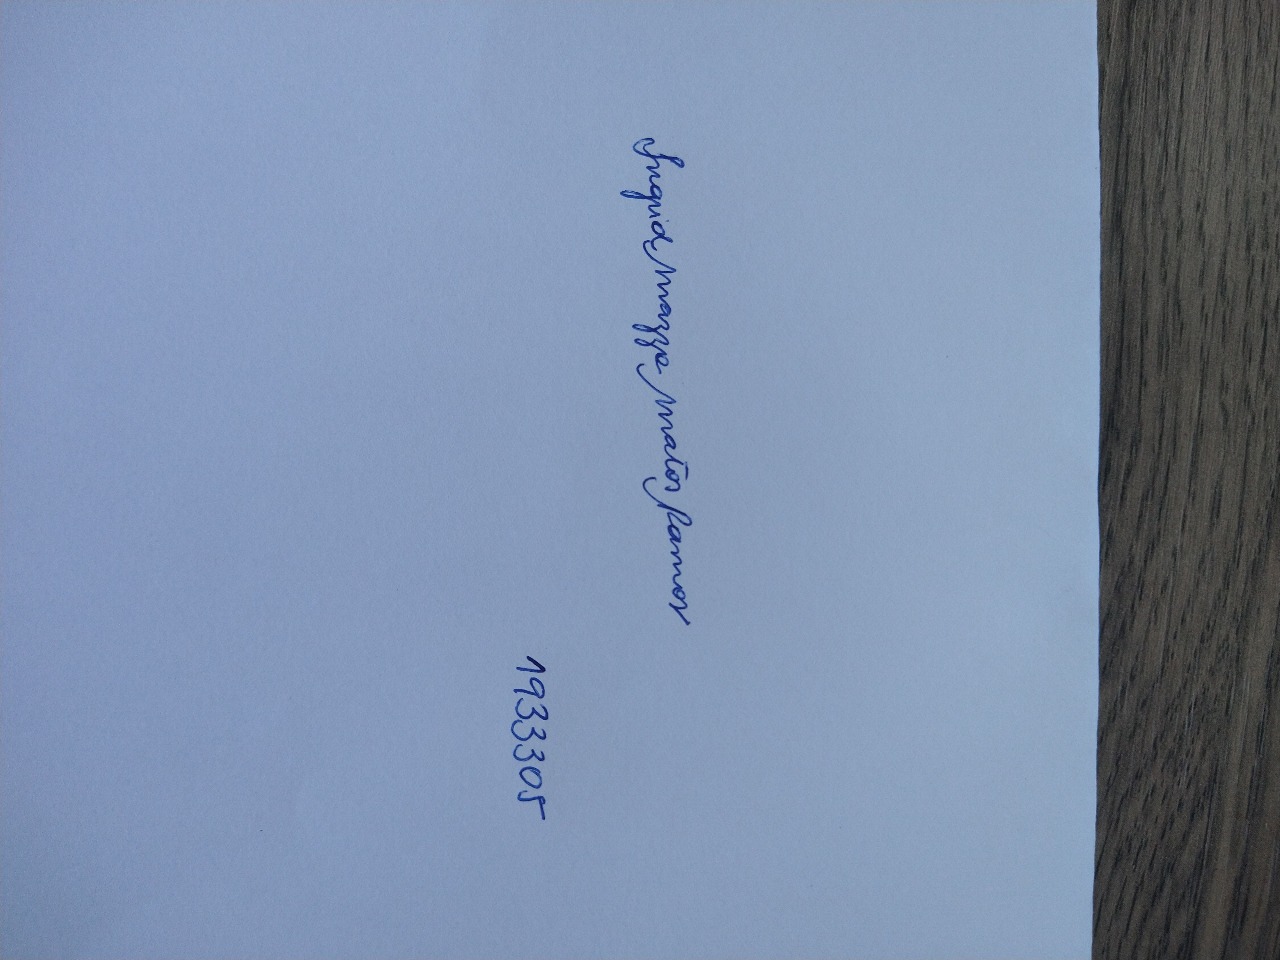 Ingrid Mazza Matos Ramos
1933305